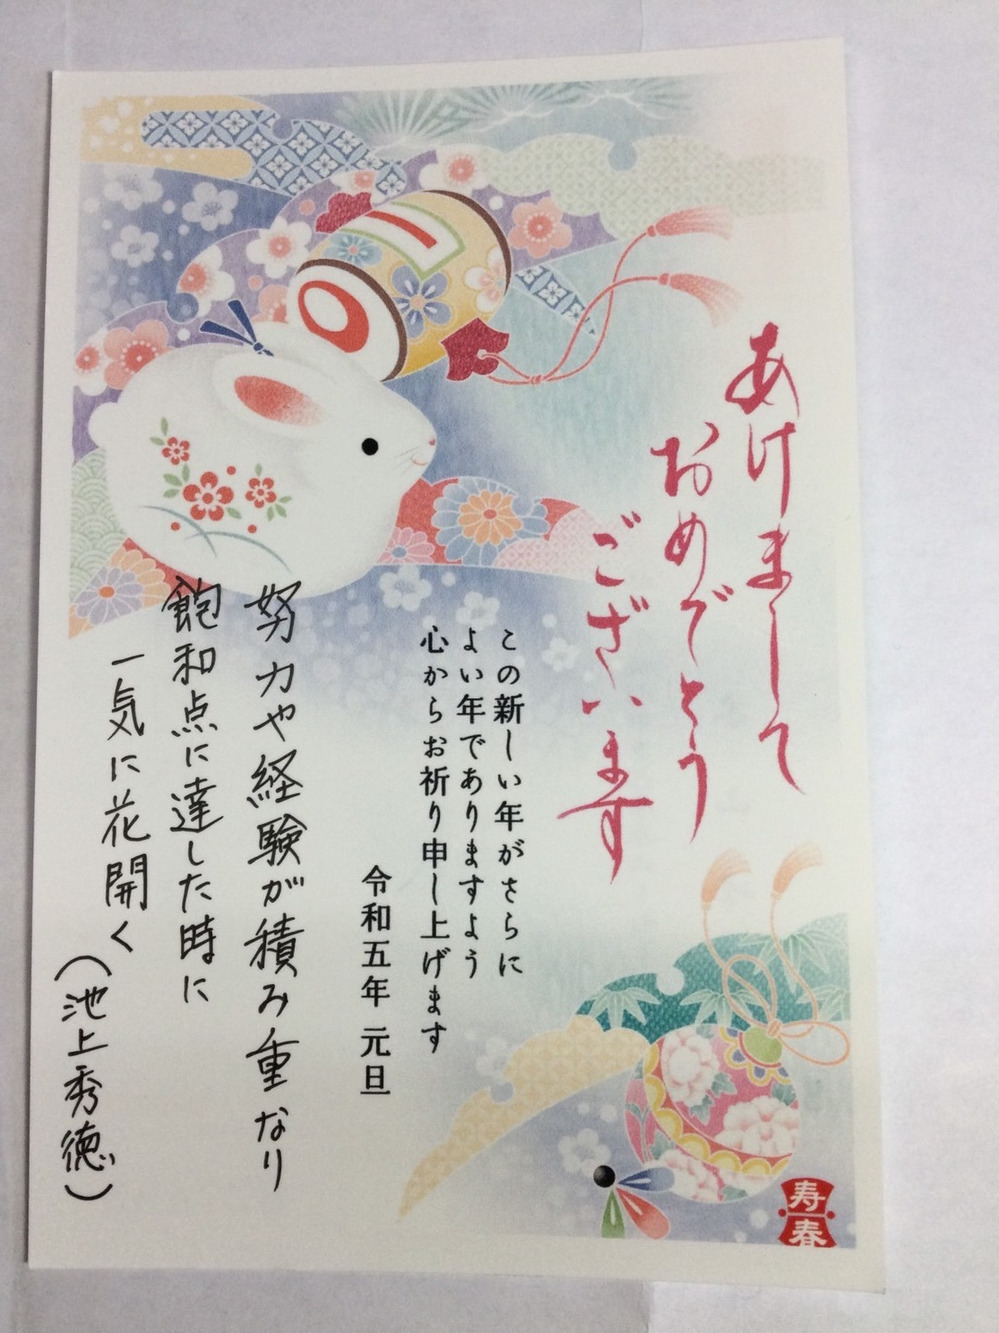 あけまして
おめでとう
ございます
この新しい年がさらに
よい年でありますよう
心からお祈り申し上げます
令和五年 元旦
努力や経験が積み重なり
飽和点に達した時に
一気に花開く
(池上秀徳)
寿春